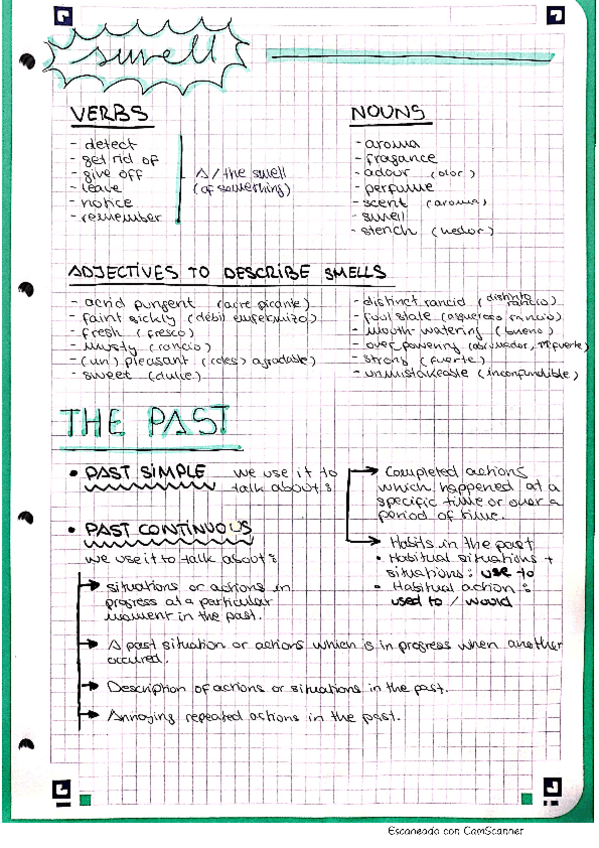 smell
VERBS
- detect
- get rid of
- give off
- leave
- notice
- remember
A / the smell
(of something)
NOUNS
- aroma
- fragance
- adour (olor)
- perfume
- scent (aroma)
- smell
- stench (hedor)
ADJECTIVES TO DESCRIBE SMELLS
- acrid pungent (acre picante)
- faint sickly (débil enfermizo)
- fresh (fresco)
- musty (rancio)
- (un) pleasant (des) agradable)
- sweet (dulce)
- distinct rancid (distinto rancio)
- foul stale (asqueroso rancio)
- mouth watering (bueno)
- over powering (abrumador, fuerte)
- strong (fuerte)
- unmistakeable (inconfundible)
THE PAST
• PAST SIMPLE we use it to
talk about:
Completed actions
which happened at a
specific time or over a
period of time.
Habits in the past
• Habitual situations +
situations: use to
• Habitual action:
used to / would
• PAST CONTINUOUS
we use it to talk about:
situations or actions in
progress at a particular
moment in the past.
A past situation or actions which is in progress when another
occured.
Description of actions or situations in the past.
Annoying repeated actions in the past.
Escaneado con CamScanner